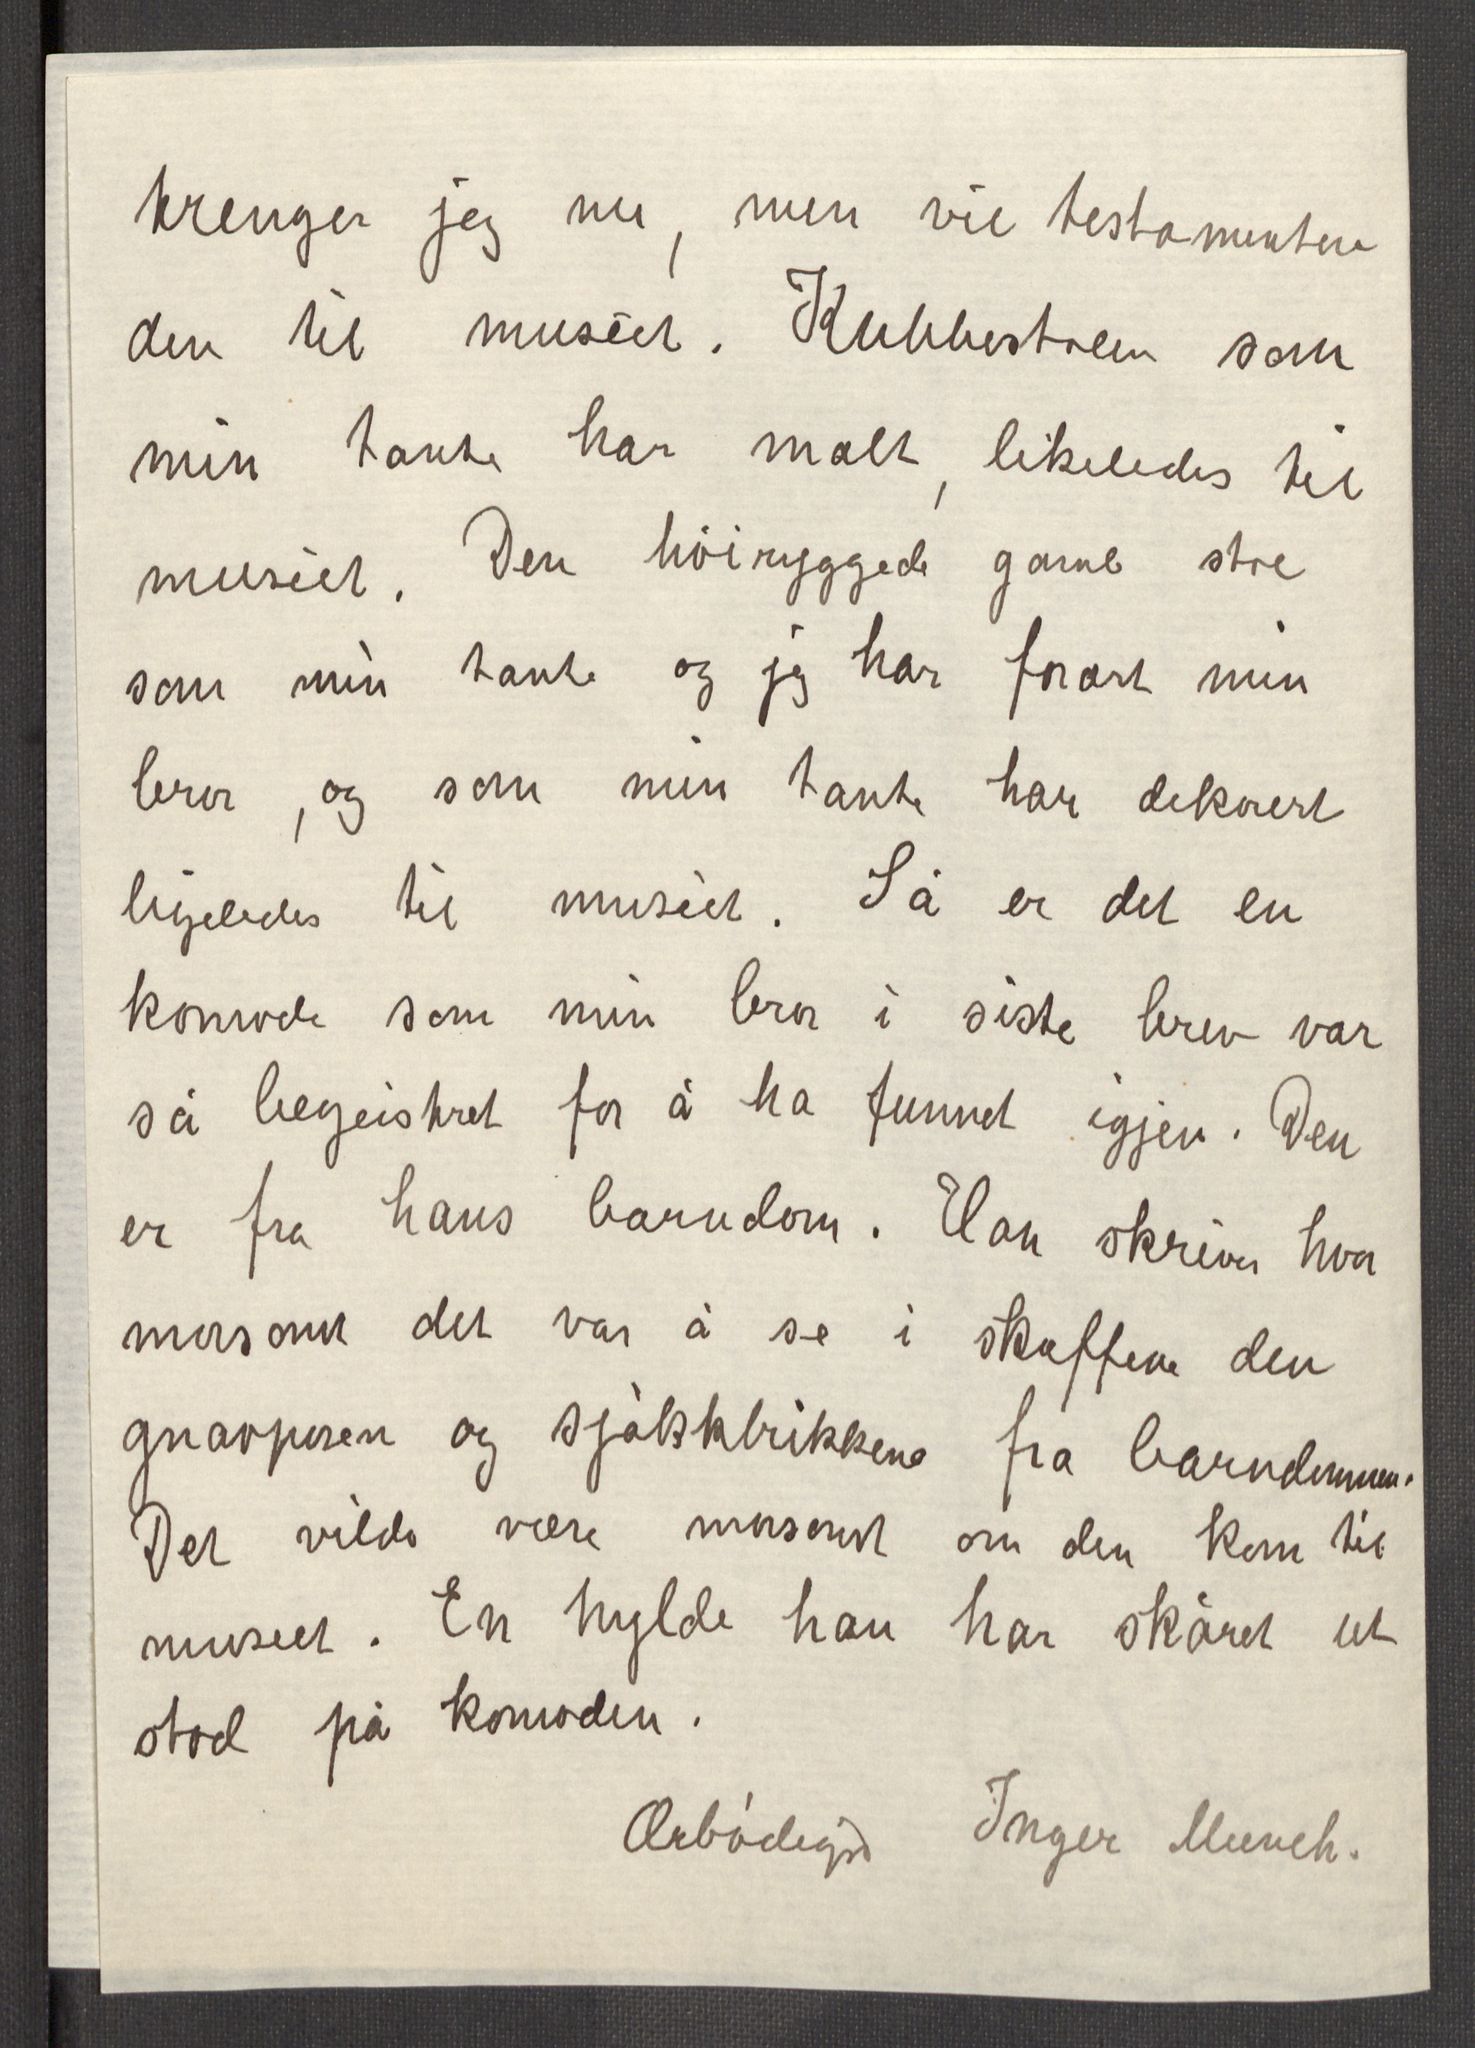 trenger jeg nu, men vil testamentere
den til muséet. Kubbestolen som
min tante har malt, likeledes til
muséet. Den höiryggede gamle stol
som min tante og jeg har forært min
bror, og som min tante har dekorert
ligeledes til muséet. Så er det en
komode som min bror i siste brev var
så begeistret for å ha funnet igjen. Den
er fra hans barndom. Han skriver hvor
morsomt det var å se i skuffene den
gnavposen og sjakkbrikkene fra barndommen.
Det vilde være morsomt om den kom til
museet. En hylde han har skåret ut
stod på komoden.
Ærbödigst Inger Munch.